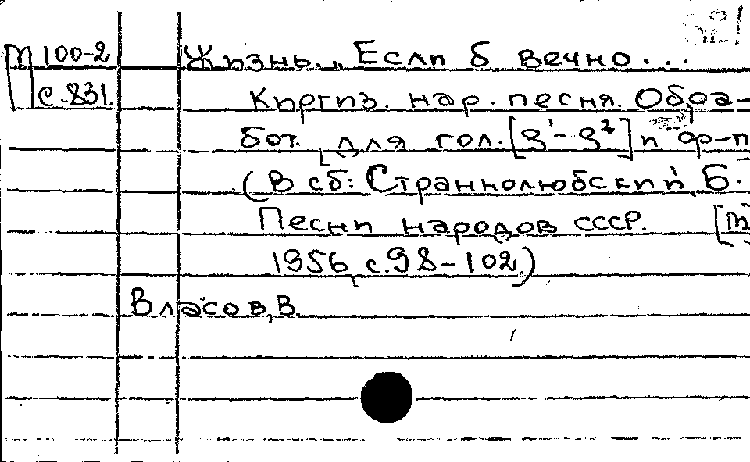 П 100-2 Жизнь, Если б вечно...
с.831. Киргиз. нар. песня. Обра-
бот. для гол. [g¹-g²] и ф-п
(В сб: Страннолюбский, Б.
Песни народов СССР. [М
1956, с.98-102)
Власов, В.